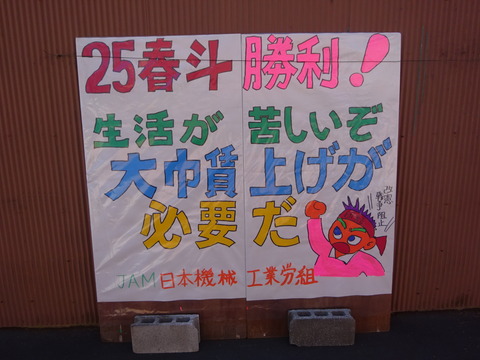 25春斗 勝利!
生活が 苦しいぞ
大巾賃 上げが
必要 だ
改憲
戦争阻止
JAM日本機械 工業労組